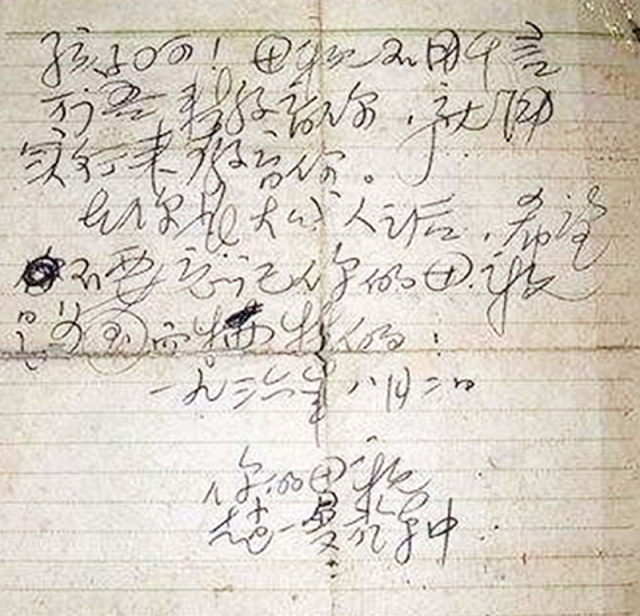 孩子呵！母親不用千言
万语来教育你，就用
实行来教育你。
在你长大成人之后，希望
不要忘记你的母親
是为国而牺牲的！
一九三六年八月二日
你的母親
赵一曼於車中